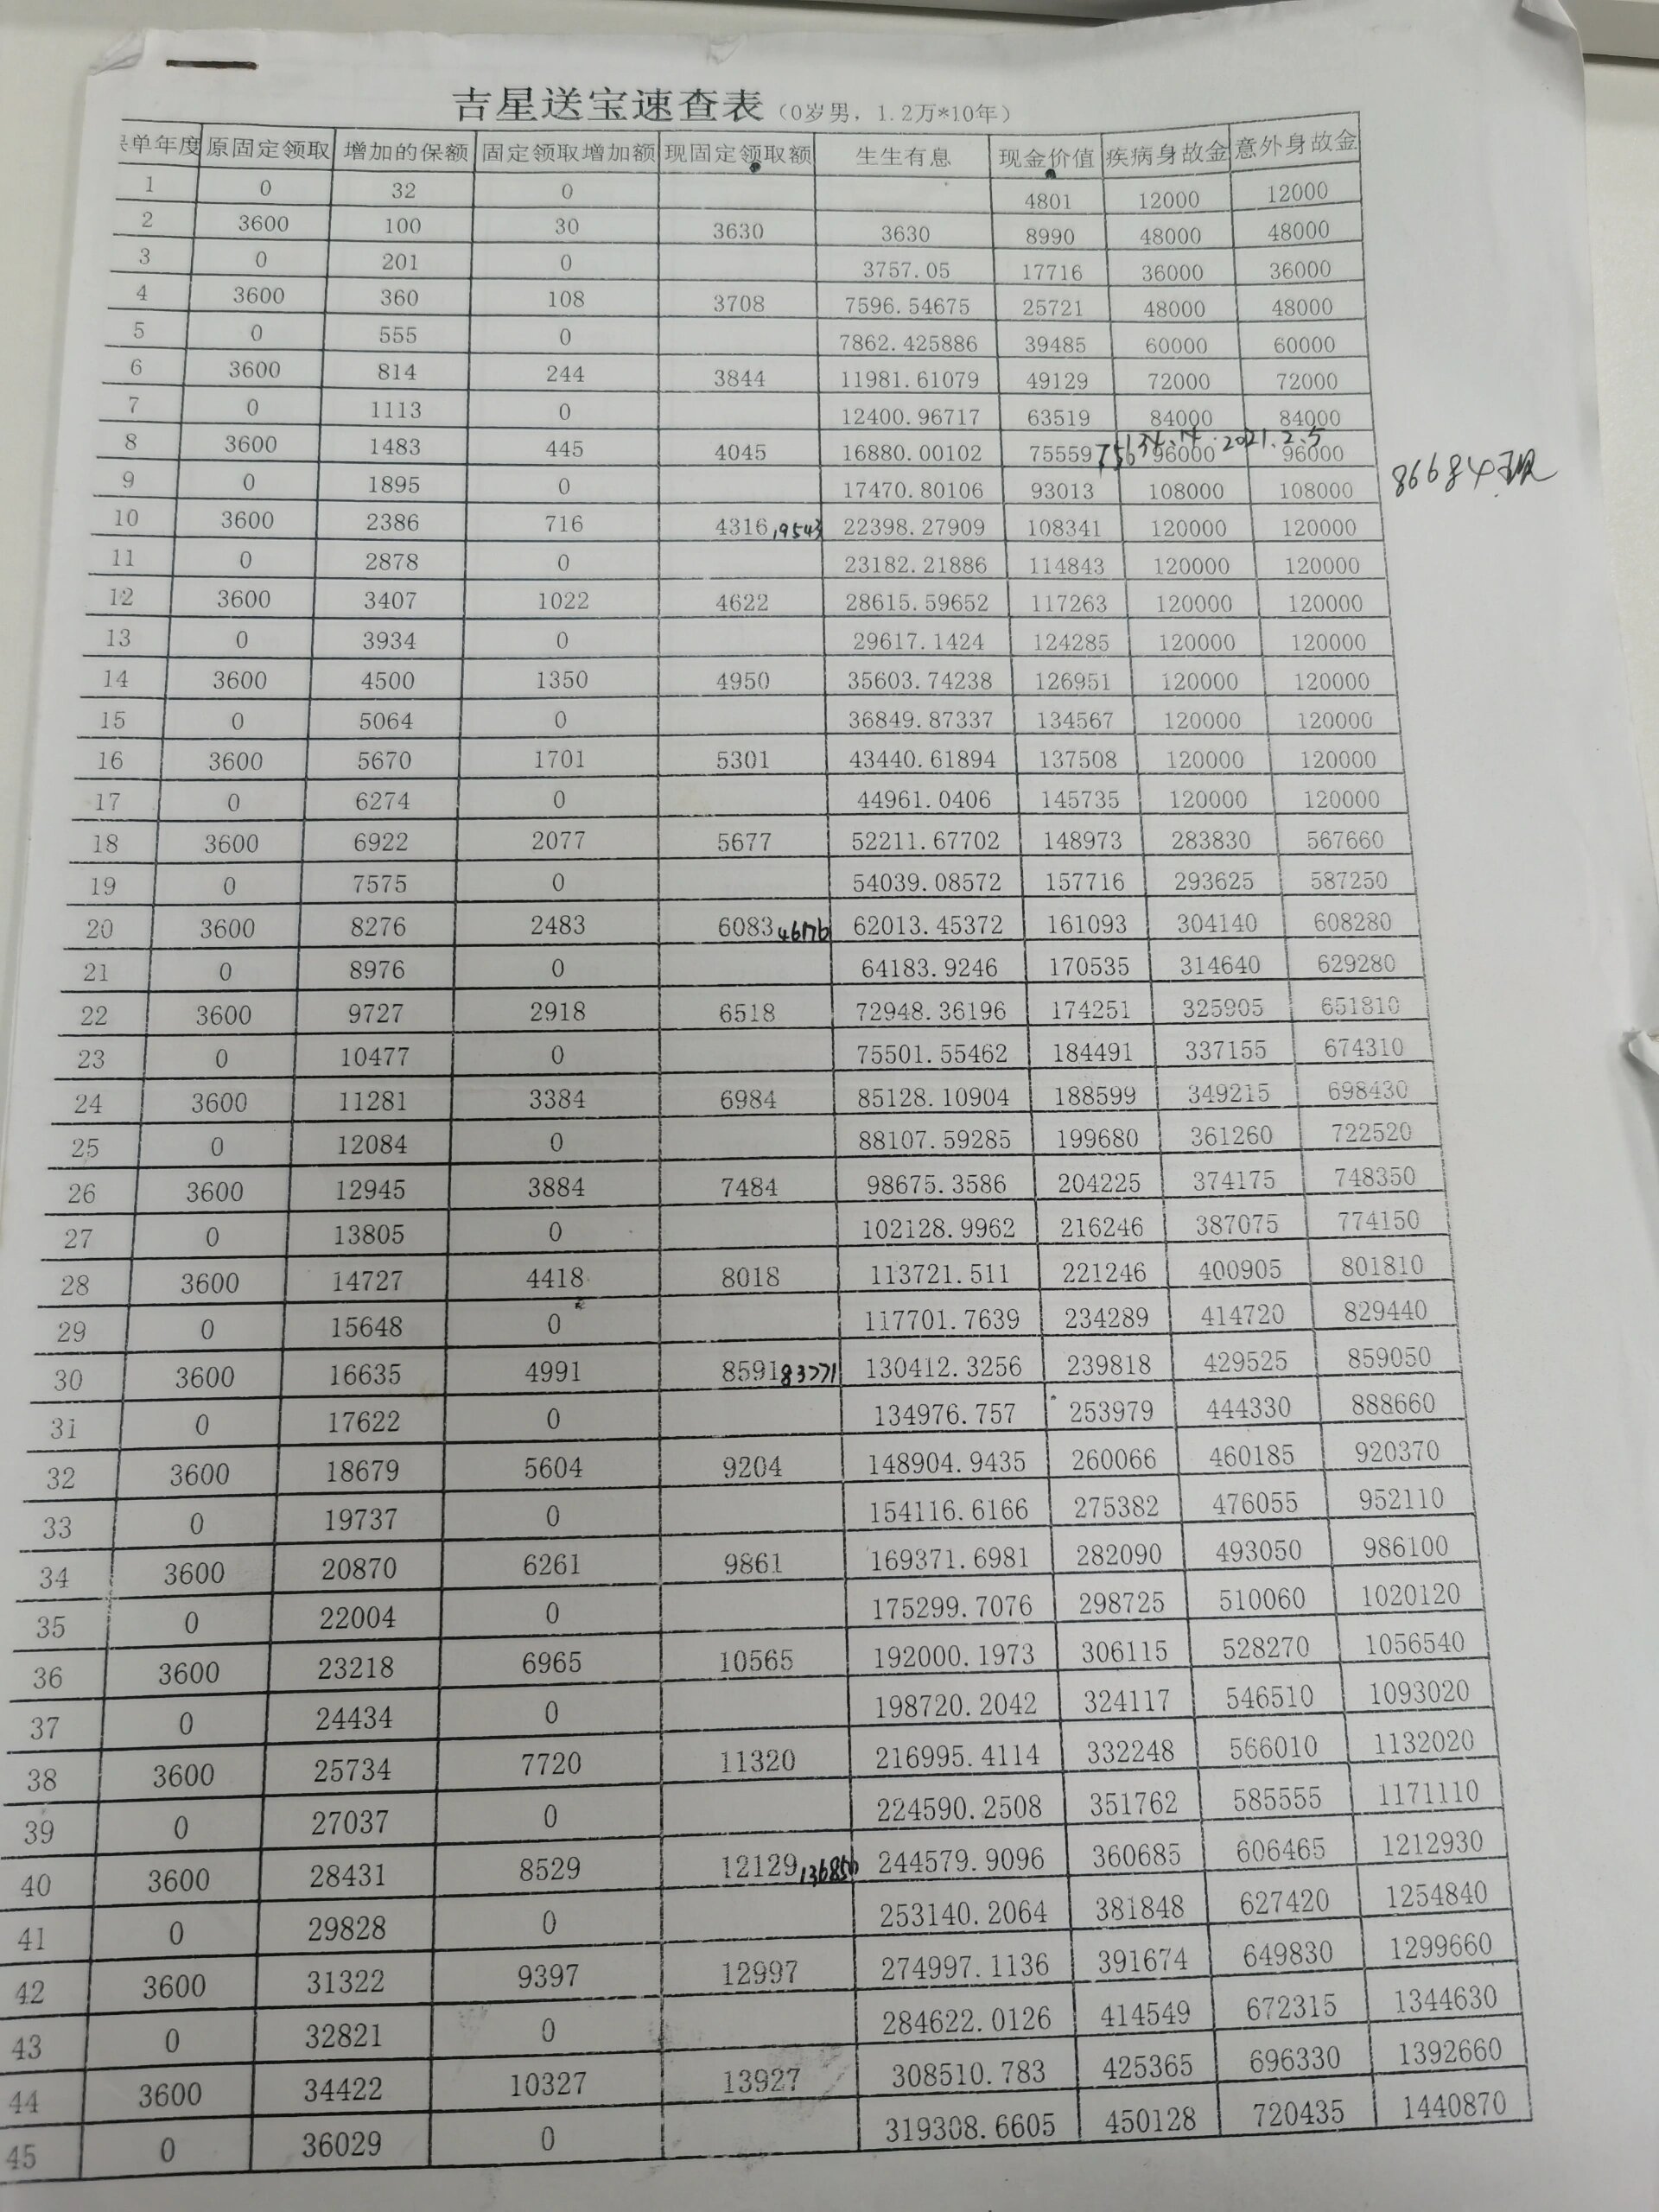 吉星送宝速查表（0岁男，1.2万*10年）
单年度 原固定领取 增加的保额 固定领取增加额 现固定领取额 生生有息 现金价值 疾病身故金 意外身故金
1 0 32 0 4801 12000 12000
2 3600 100 30 3630 3630 8990 48000 48000
3 0 201 0 3757.05 17716 36000 36000
4 3600 360 108 3708 7596.54675 25721 48000 48000
5 0 555 0 7862.425886 39485 60000 60000
6 3600 814 244 3844 11981.61079 49129 72000 72000
7 0 1113 0 12400.96717 63519 84000 84000
8 3600 1483 445 4045 16880.00102 75559 75634.14 2021.2.5 96000 96000
86684
9 0 1895 0 17470.80106 93013 108000 108000
10 3600 2386 716 4316 ,19543 22398.27909 108341 120000 120000
11 0 2878 0 23182.21886 114843 120000 120000
12 3600 3407 1022 4622 28615.59652 117263 120000 120000
13 0 3934 0 29617.1424 124285 120000 120000
14 3600 4500 1350 4950 35603.74238 126951 120000 120000
15 0 5064 0 36849.87337 134567 120000 120000
16 3600 5670 1701 5301 43440.61894 137508 120000 120000
17 0 6274 0 44961.0406 145735 120000 120000
18 3600 6922 2077 5677 52211.67702 148973 283830 567660
19 0 7575 0 54039.08572 157716 293625 587250
20 3600 8276 2483 6083 46176 62013.45372 161093 304140 608280
21 0 8976 0 64183.9246 170535 314640 629280
22 3600 9727 2918 6518 72948.36196 174251 325905 651810
23 0 10477 0 75501.55462 184491 337155 674310
24 3600 11281 3384 6984 85128.10904 188599 349215 698430
25 0 12084 0 88107.59285 199680 361260 722520
26 3600 12945 3884 7484 98675.3586 204225 374175 748350
27 0 13805 0 102128.9962 216246 387075 774150
28 3600 14727 4418 8018 113721.511 221246 400905 801810
29 0 15648 0 117701.7639 234289 414720 829440
30 3600 16635 4991 8591 83771 130412.3256 239818 429525 859050
31 0 17622 0 134976.757 253979 444330 888660
32 3600 18679 5604 9204 148904.9435 260066 460185 920370
33 0 19737 0 154116.6166 275382 476055 952110
34 3600 20870 6261 9861 169371.6981 282090 493050 986100
35 0 22004 0 175299.7076 298725 510060 1020120
36 3600 23218 6965 10565 192000.1973 306115 528270 1056540
37 0 24434 0 198720.2042 324117 546510 1093020
38 3600 25734 7720 11320 216995.4114 332248 566010 1132020
39 0 27037 0 224590.2508 351762 585555 1171110
40 3600 28431 8529 12129 244579.9096 360685 606465 1212930
41 0 29828 0 253140.2064 381848 627420 1254840
42 3600 31322 9397 12997 274997.1136 391674 649830 1299660
43 0 32821 0 284622.0126 414549 672315 1344630
44 3600 34422 10327 13927 308510.783 425365 696330 1392660
45 0 36029 0 319308.6605 450128 720435 1440870